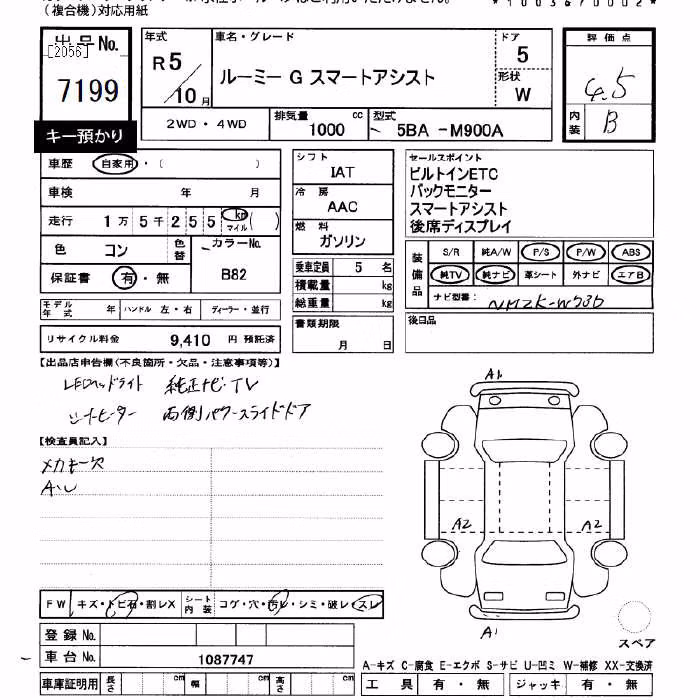 (複合機)対応用紙
*1003670002*
出品No.
[2056]
7199
キー預かり
年式 車名・グレード ドア
R5/10月 ルーミー G スマートアシスト 5
形状 W
2WD・4WD 排気量 1000 cc 型式 5BA -M900A
評価点
4.5
内装 B
車歴 自家用・( )
車検 年 月
走行 1万5千255 km マイル ( )
色 コン 色替 カラーNo. B82
保証書 有・無
モデル年式 年 ハンドル 左・右 ディーラー・並行
リサイクル料金 9,410 円 預託済
シフト
IAT
冷房
AAC
燃料
ガソリン
乗車定員 5 名
積載量 kg
総重量 kg
書類期限
月 日
セールスポイント
ビルトインETC
バックモニター
スマートアシスト
後席ディスプレイ
装備品 S/R 純A/W P/S P/W ABS
純TV 純ナビ 革シート 外ナビ エアB
ナビ型番:
後日品
【出品店申告欄(不良箇所・欠品・注意事項等)】
LEDヘッドライト 純正ナビ・TV
シートヒーター 両側パワースライドドア
【検査員記入】
メカキー欠
A・U
A1
A2 A2
A1
スペア
FW キズ・トビ石・割レX シート内装 コゲ・穴・汚レ・シミ・破レ・スレ
登録No.
車台No. 1087747
車庫証明用 長さ cm 幅 cm 高さ cm
A-キズ C-腐食 E-エクボ S-サビ U-凹ミ W-補修 XX-交換済
工具 有・無 ジャッキ 有・無